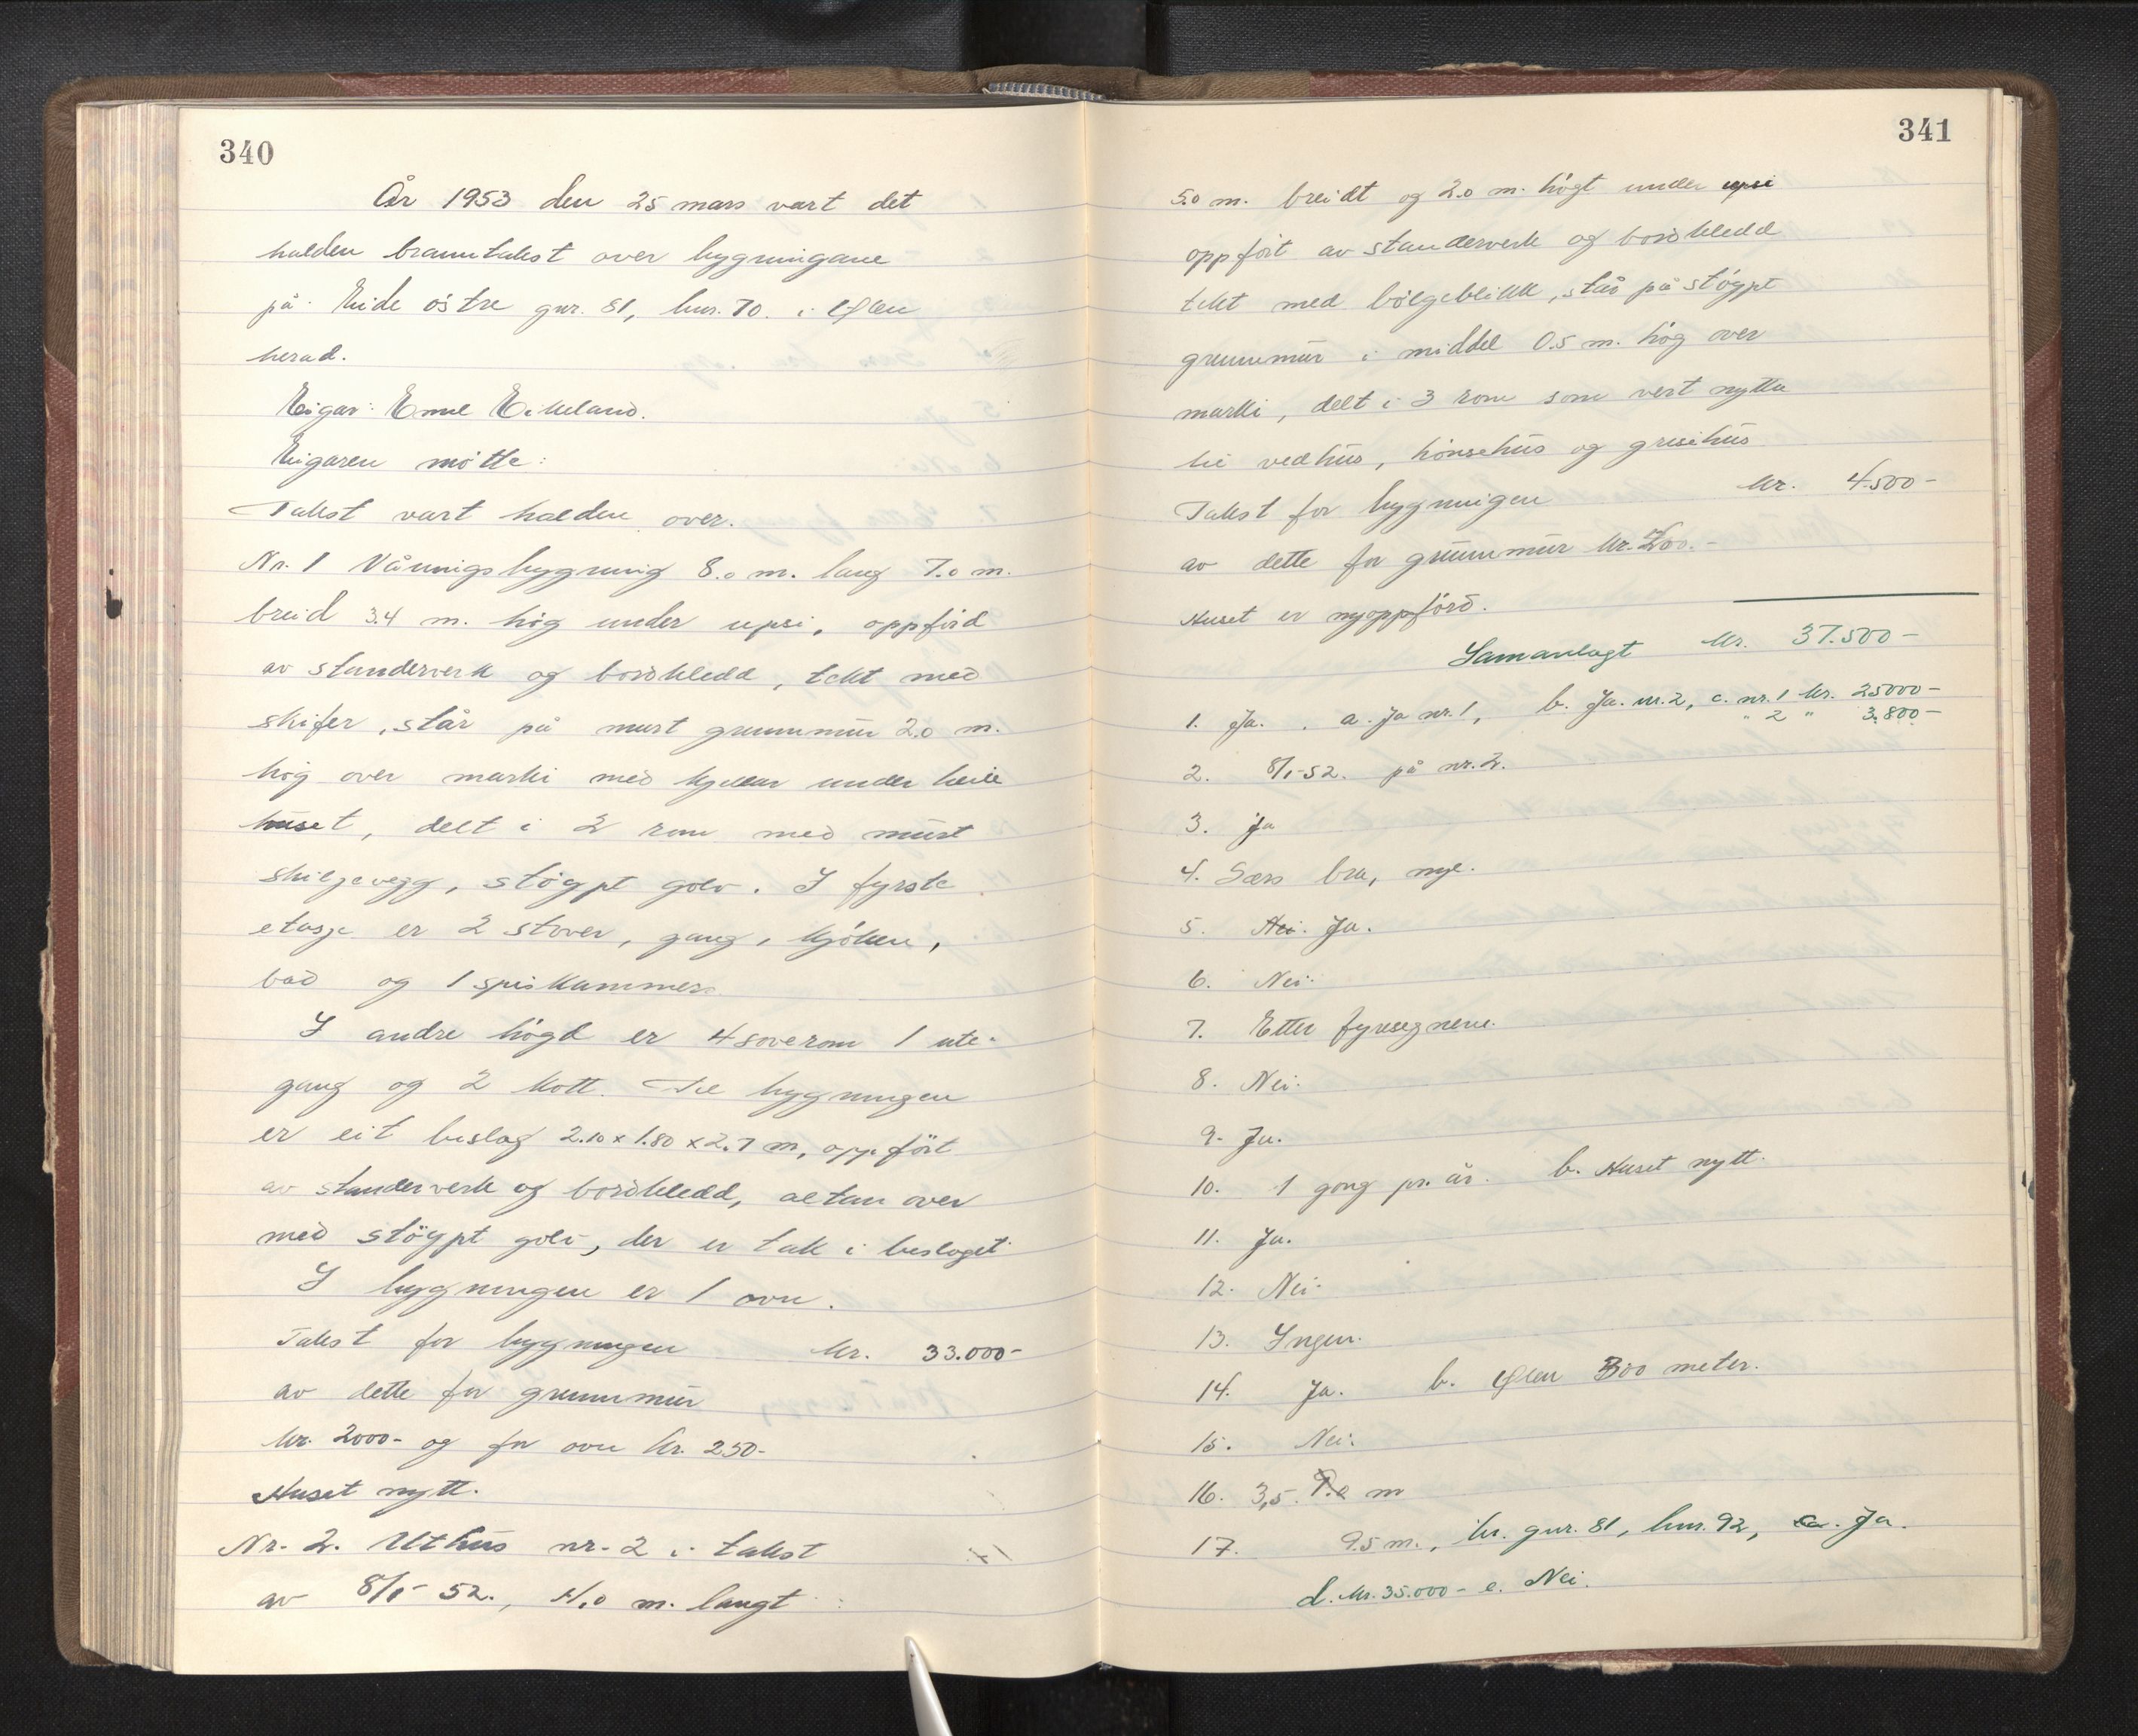 340
År 1953 den 25 mars vart det
halden branntakst over bygningane
på Eide östre gnr. 81, bnr. 70. i Ølen
herad.
Eigar: Emil Eikeland.
Eigaren mötte:
Takst vart halden over.
Nr. 1 Våningsbygning 8.0 m. lang 7.0 m.
breid 3.4 m. hög under upsi, oppförd
av standerverk og bordkledd, tekt med
skifer, står på murt grunnmur 2.0 m.
hög over marki med kjellar under heile
huset, delt i 2 rom med murt
skiljevegg, stöypt golv. I fyrste
etasje er 2 stover, gang, kjöken,
bad og 1 spiskammers
I andre högd er 4 soverom 1 ute-
gang og 2 kott. Til bygningen
er eit beslag 2.10 x 1.80 x 2.7 m, oppfört
av standerverk og bordkledd, altan over
med stöypt golv, der er tak i beslaget
I bygningen er 1 ovn.
Takst for bygningen kr. 33.000-
av dette for grunnmur
kr. 2000- og for ovn kr. 250-
Huset nytt.
Nr. 2. Uthus nr. 2 i takst
av 8/1-52., m. langt
341
5.0 m. breidt og 2.0 m. högt under upsi
oppfört av standerverk og bordkledd
tekt med bölgeblikk, står på stöypt
grunnmur i middel 0.5 m. hög over
marki, delt i 3 rom som vert nytta
til vedhus, hönsehus og grisehus
Takst for bygningen kr. 4.500-
av dette for grunnmur kr. 200.-
Huset er nyoppförd.
Samanlagt kr. 37.500-
1. Ja. a. Ja nr. 1, b. Ja. nr. 2, c. nr. 1 kr. 25000-
" 2 " 3.800-
2. 8/1-52. på nr. 2.
3. Ja
4. Særs bra, nye.
5. Nei. Ja.
6. Nei.
7. Etter fyresegnene.
8. Nei.
9. Ja.
10. 1 gong pr. år. b. Huset nytt.
11. Ja.
12. Nei.
13. Ingen.
14. Ja. b. Ølen 300 meter.
15. Nei.
16. 3,5. m
17. 9.5 m., gnr. 81, bnr. 92, Ja.
d. kr. 35.000- e. Nei.